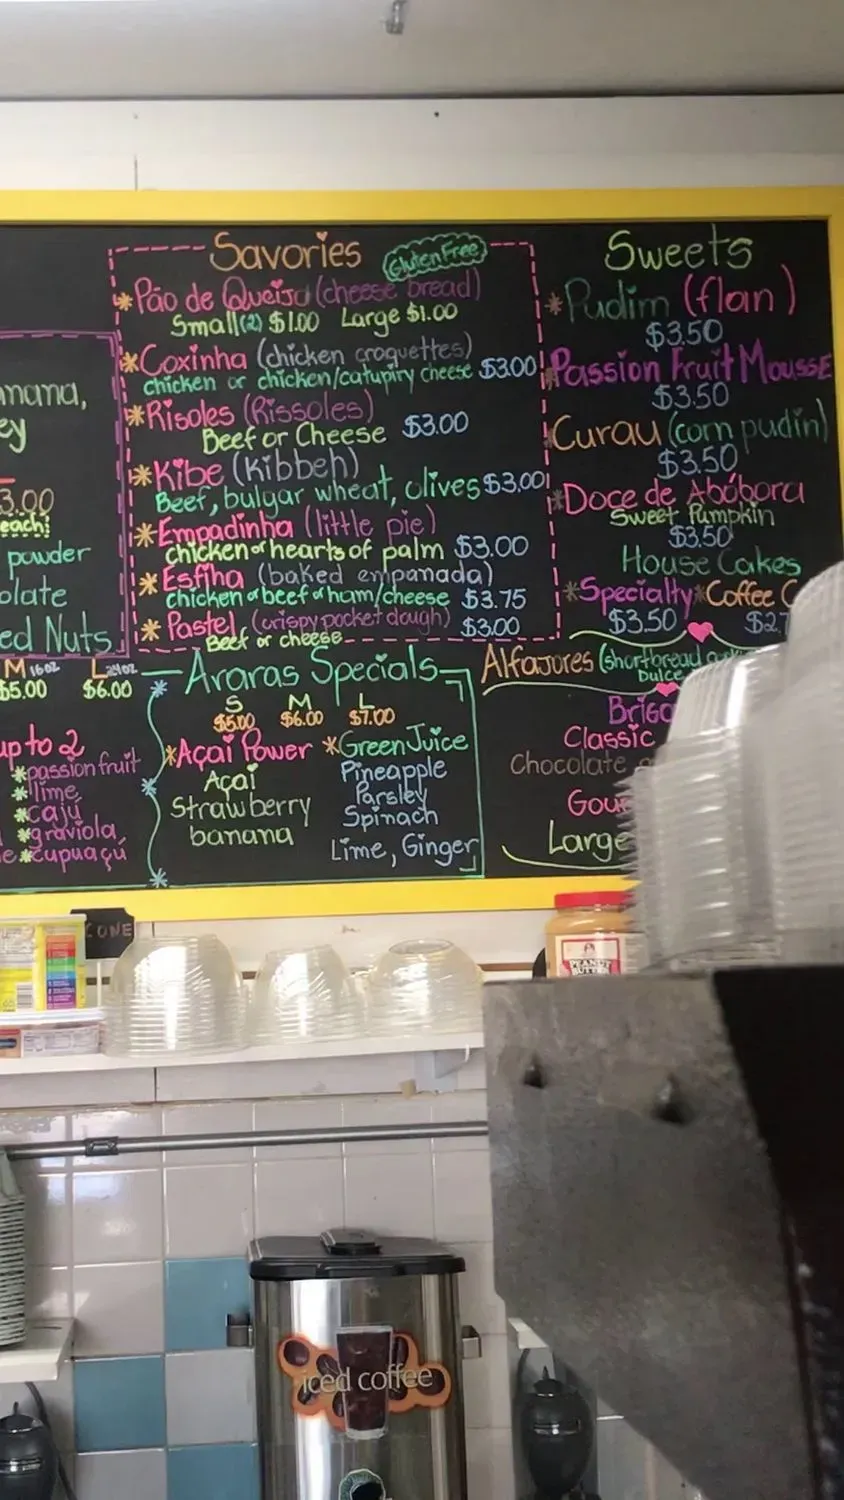 Savories
Gluten Free
*Pão de Queijo (cheese bread)
Small(2) $1.00 Large $1.00
*Coxinha (chicken croquettes)
chicken or chicken/catupiry cheese $3.00
*Risoles (Rissoles)
Beef or Cheese $3.00
*Kibe (Kibbeh)
Beef, bulgar wheat, olives $3.00
*Empadinha (little pie)
chicken or hearts of palm $3.00
*Esfiha (baked empanada)
chicken or beef or ham/cheese $3.75
*Pastel (crispy pocket dough)
Beef or cheese $3.00
Sweets
*Pudim (flan)
$3.50
*Passion Fruit Mousse
$3.50
Curau (corn pudin)
$3.50
*Doce de Abóbora
Sweet Pumpkin
$3.50
House Cakes
*Specialty *Coffee C
$3.50 $2.7
Alfajores (shortbread
Dulce
Classic
Chocolate
Large
anana,
ey
3.00
each
powder
olate
ed Nuts
M 16oz L 24oz
$5.00 $6.00
up to 2
*passion fruit
*lime
*cajú
*graviola,
*cupuaçú
Araras Specials
S M L
$5.00 $6.00 $7.00
*Açai Power
Açai
Strawberry
banana
*Green Juice
Pineapple
Parsley
Spinach
Lime, Ginger
CONE
PEANUT
BUTTER
iced coffee